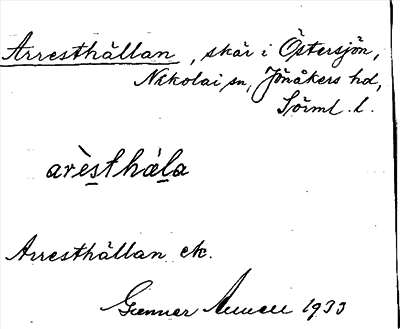 Arresthällan, skär i Östersjön,
Nikolai sn, Jönåkers hd,
Sörml. l.
arèsthäl̀a
Arresthällan ek.
Gunnar 1933